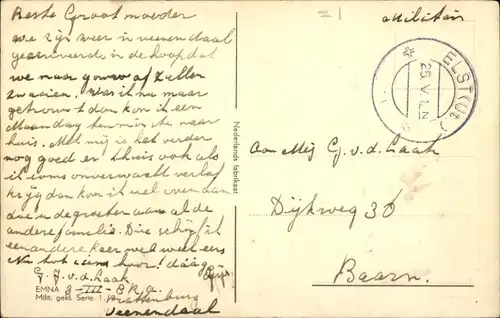 Beste Grootmoeder
we zijn weer in veenendaal
gearriveerd, in de hoop dat
we maar gauw af zullen
zwaaien. Was ik nu maar
getrouwd dan kon ik een
Maandag ten minste naar
huis. Met mij is het verder
nog goed er thuis ook als
ik eens onverwacht verlof
krijg dan kon ik wel even dan
doe er de groeten aan al de
andere familie. Die schrijf ik
een andere keer wel weer eens
Nu tot ziens hoor! dáág
Gijs
G. J. v. d. Laak
8 - III - 8 R.a.
Prattenburg
Veenendaal
EMNA
Milit. gekl. Serie 1.
Nederlands fabrikaat
Militair
ELST (UT.)
25. V. 12.N
Aan Mej G. v. d. Laak
Dijkweg 36
Baarn.